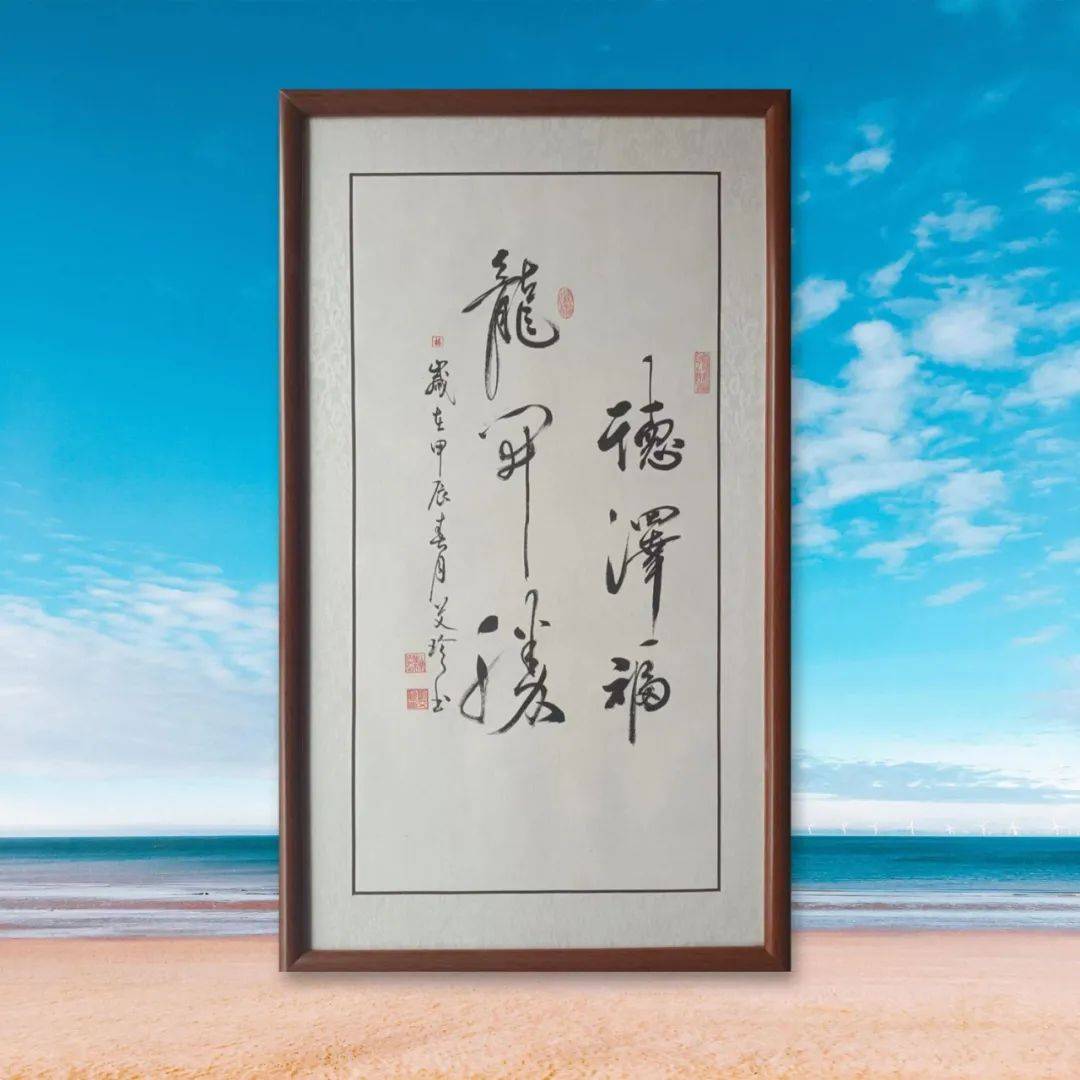 德澤福
龍開勝
歲在甲辰春月艾珍书